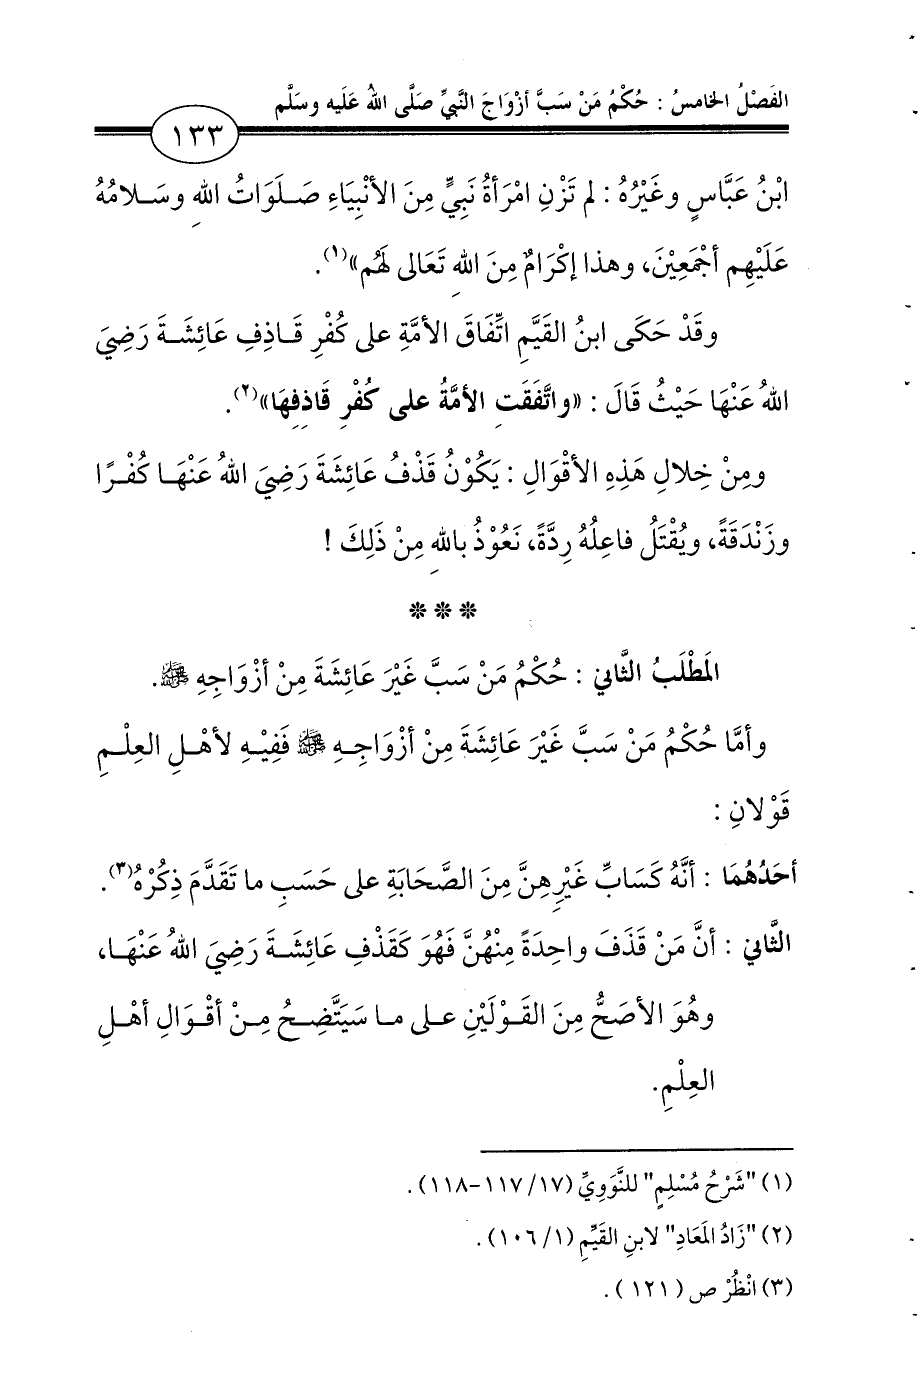 الفَصْلُ الخامسُ : حُكْمُ مَنْ سَبَّ أزْوَاجَ النَّبيِّ صَلَّى اللهُ عَلَيه وسَلَّم
١٣٣
ابْنُ عَبَّاسٍ وغَيْرُهُ : لم تَزْنِ امْرَأةُ نَبِيٍّ مِنَ الأنْبِيَاءِ صَلَوَاتُ اللهِ وسَلامُهُ
عَلَيْهِم أجْمَعِيْنَ، وهذا إكْرَامٌ مِنَ اللهِ تَعَالى لَهُم»(١).
وقَدْ حَكَى ابنُ القَيَّمِ اتِّفَاقَ الأمَّةِ على كُفْرِ قَاذِفِ عَائِشَةَ رَضِيَ
اللهُ عَنْهَا حَيْثُ قَالَ : «واتَّفَقَتِ الأمَّةُ على كُفْرِ قَاذِفِهَا»(٢).
ومِنْ خِلالِ هَذِهِ الأقْوَالِ : يَكُوْنُ قَذْفُ عَائِشَةَ رَضِيَ اللهُ عَنْهَا كُفْرًا
وزَنْدَقَةً، ويُقْتَلُ فاعِلُهُ رِدَّةً، نَعُوْذُ باللهِ مِنْ ذَلِكَ !
***
المَطْلَبُ الثَّاني : حُكْمُ مَنْ سَبَّ غَيْرَ عَائِشَةَ مِنْ أزْوَاجِهِ ﷺ.
وأمَّا حُكْمُ مَنْ سَبَّ غَيْرَ عَائِشَةَ مِنْ أزْوَاجِهِ ﷺ فَفِيْهِ لأهْلِ العِلْمِ
قَوْلانِ :
أحَدُهُمَا : أنَّهُ كَسَابِّ غَيْرِهِنَّ مِنَ الصَّحَابَةِ على حَسَبِ ما تَقَدَّمَ ذِكْرُهُ(٣).
الثَّاني : أنَّ مَنْ قَذَفَ واحِدَةً مِنْهُنَّ فَهُوَ كَقَذْفِ عَائِشَةَ رَضِيَ اللهُ عَنْهَا،
وهُوَ الأصَحُّ مِنَ القَوْلَيْنِ على ما سَيَتَّضِحُ مِنْ أقْوَالِ أهْلِ
العِلْمِ.
(١) "شَرْحُ مُسْلِمٍ" للنَّوَوِيِّ (١١٧/١٧-١١٨).
(٢) "زَادُ المَعَادِ" لابنِ القَيِّمِ (١٠٦/١).
(٣) انْظُرْ ص (١٢١).